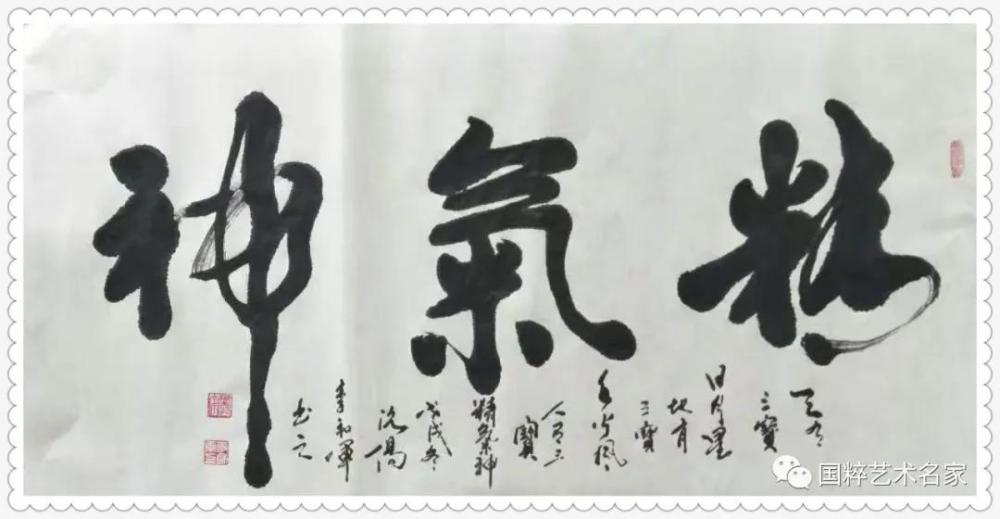 精氣神
天有
三寶
日月星
地有
三寶
水火風
人有三
寶
精氣神
戊戌冬
李和
书之
国粹艺术名家